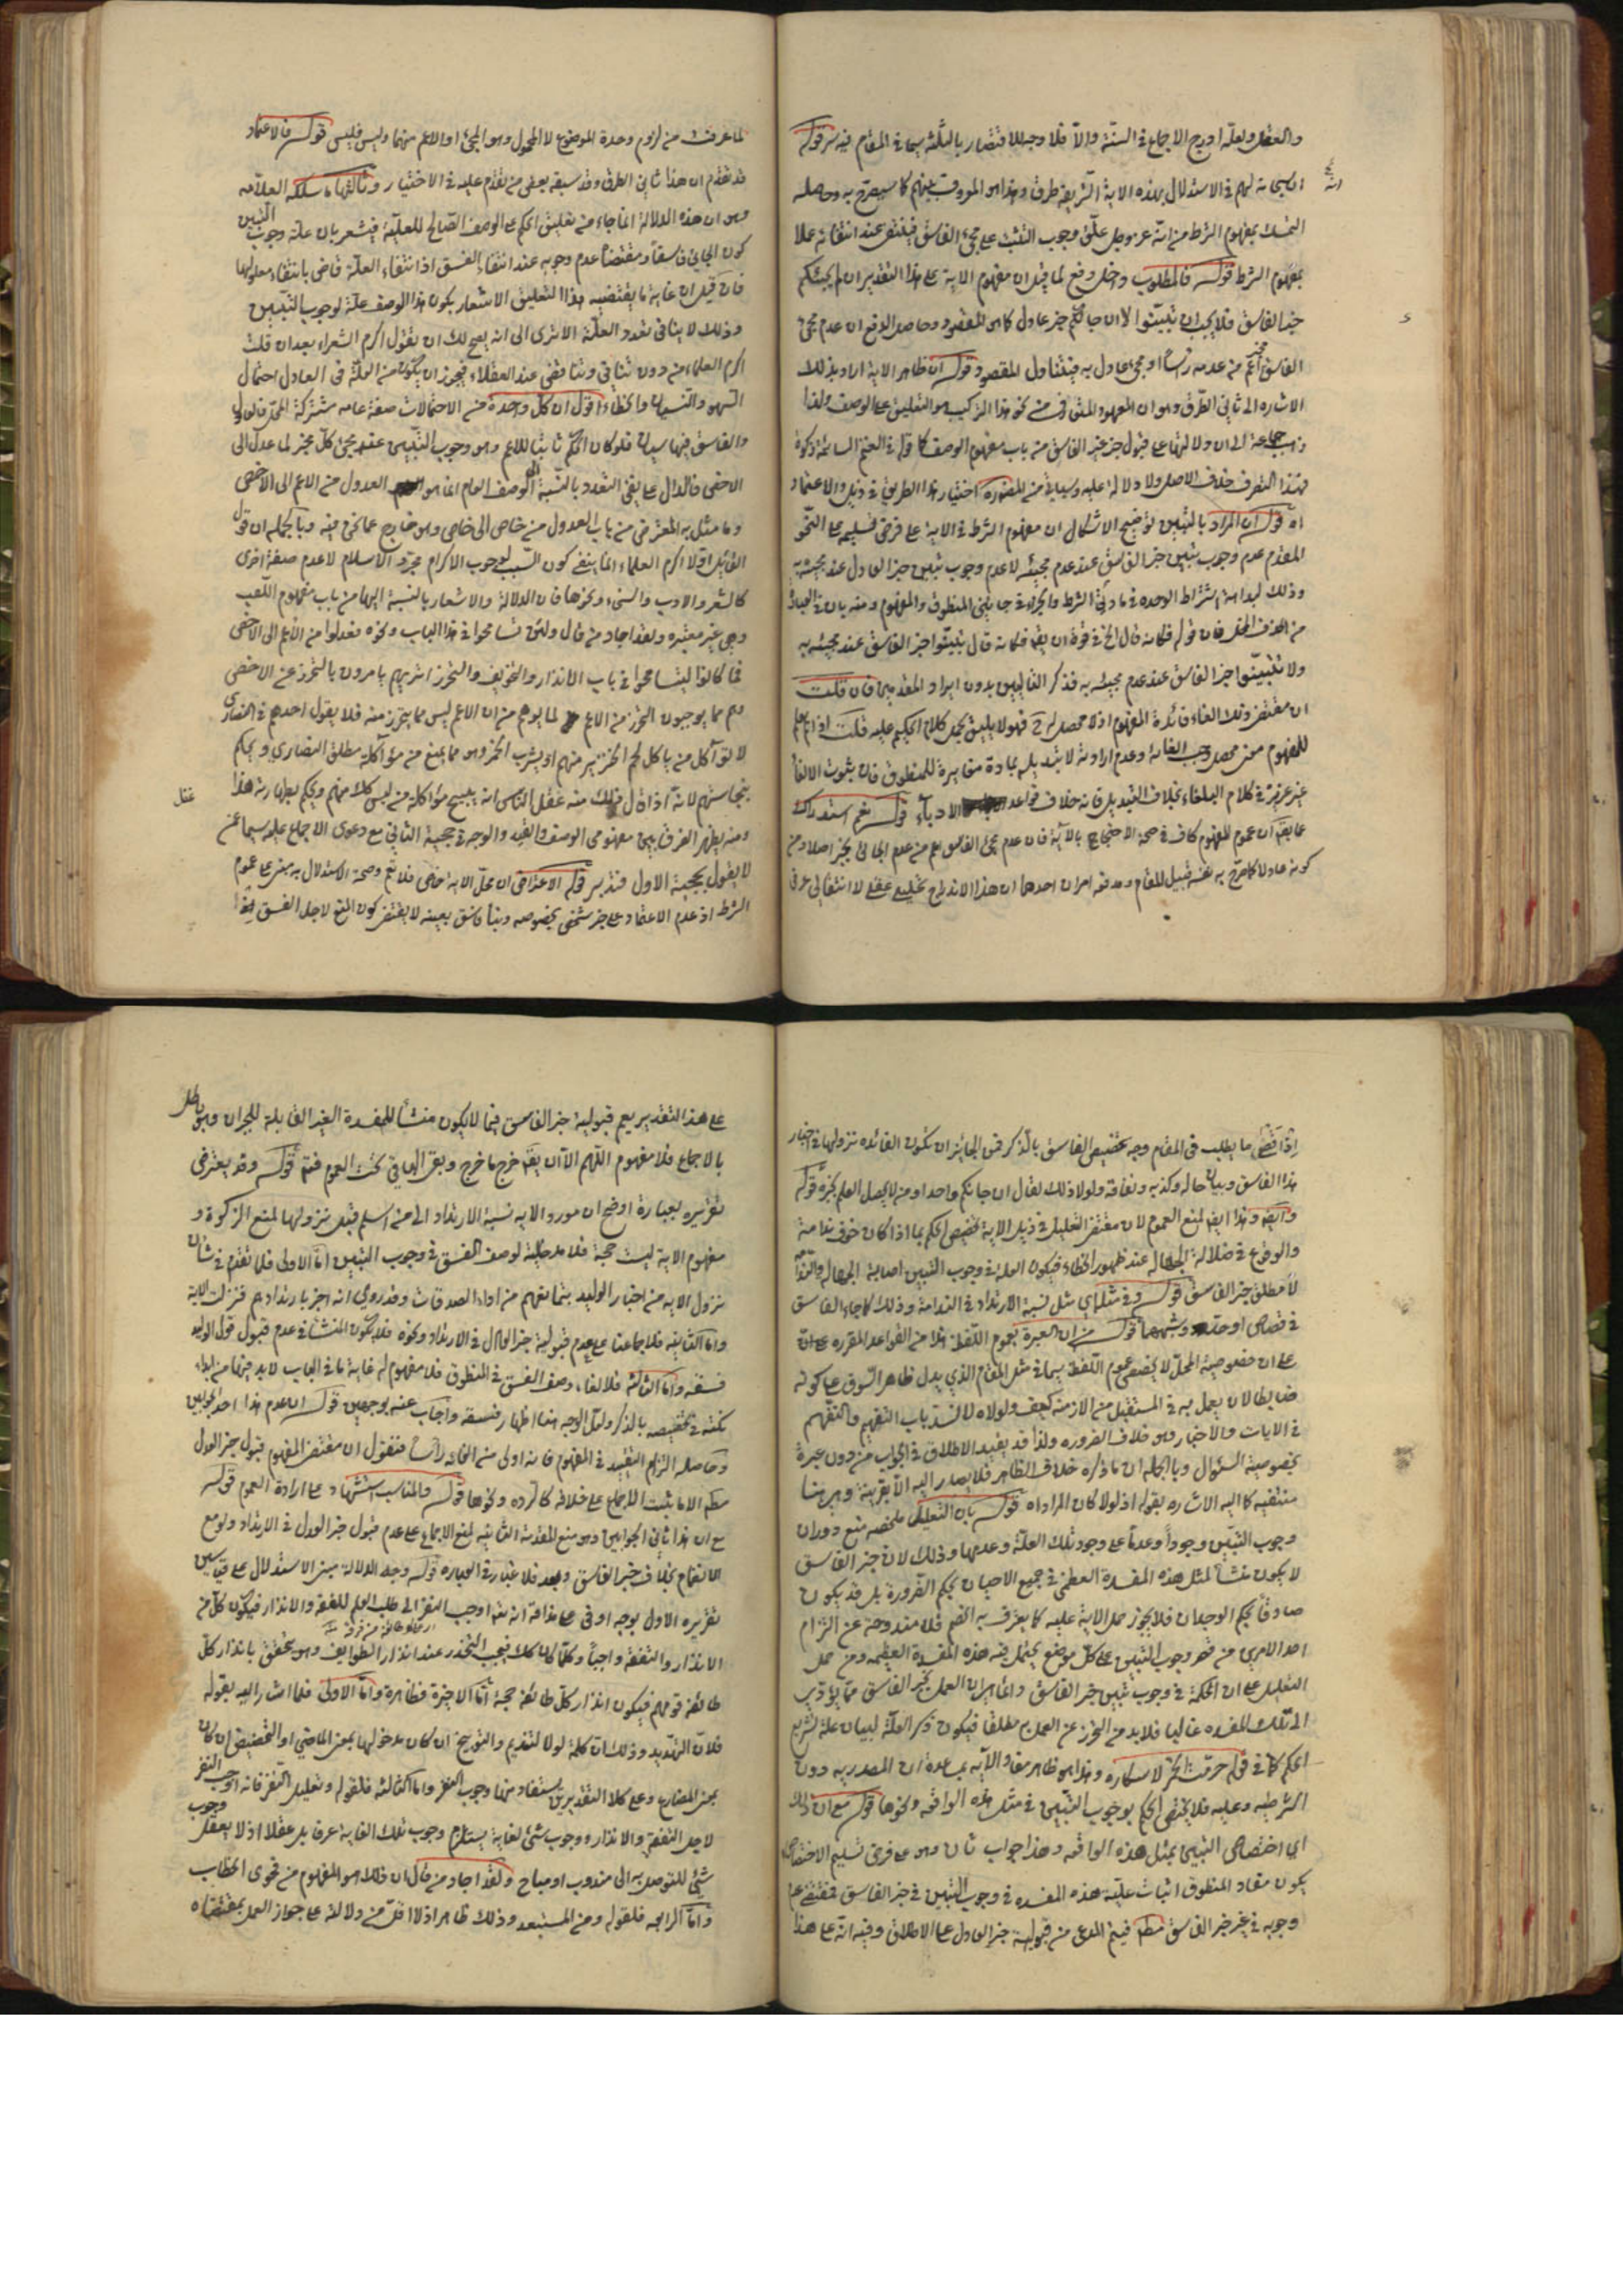 والعقل ولعله ادرج الاجماع في السنة والا فلا وجه للاقتصار بالثلثة سيما في المقام فيه سر قوله
ان لهم في الاستدلال بهذه الاية الشريفة طرق وهذا هو المعروف بينهم كما سيصرح به وحاصله
التمسك بمفهوم الشرط من انه عز وجل علق وجوب التثبت على مجئ الفاسق فينتفى عند انتفائه عملا
بمفهوم الشرط قوله فالمطلوب دفع لما قيل ان مفهوم الاية على هذا التقدير ان لم يجئكم
خبر الفاسق فلا يجب ان تبينوا لا ان جائكم خبر عادل كما هو المقصود وحاصل الدفع ان عدم مجئ
الفاسق اعم من عدمه راسا او مجئ عادل به فيتناول المقصود قوله ان ظاهر الاية اراد بذلك
الاشاره الى ثاني الطرق وهو ان المعهود من نحو هذا التركيب هو التعليق على الوصف ولذا
ذهب جماعة الى ان دلالتها على قبول خبر غير الفاسق من باب مفهوم الوصف كما في قوله في الغنم السائمة زكوة
فهذا التصرف خلاف الاصل ولا دلالة عليه وسياتي من المصنف اختيار هذا الطريق في ذيل والاعتماد
اه قوله ان المراد بالتبين توضيح الاشكال ان مفهوم الشرط في الاية على فرض تسليمه على النحو
المقدم عدم وجوب تبين خبر الفاسق عند عدم مجيئه لا عدم وجوب تبين خبر العادل عند مجيئه به
وذلك لبداهة اشتراط الوحده في مادتي الشرط والجزاء في جانبي المنطوق والمفهوم ومنه بان في العبارة
من الحزازة فان قوله فكانه قال الخ في قوة ان يقال فكانه قال تبينوا خبر الفاسق عند مجيئه به
ولا تتبينوا خبر الفاسق عند عدم مجيئه به فذكر التاليين بدون ايراد المقدمين فان قلت
ان مقتضى ذلك الغاء فائدة المفهوم اذ لا محصل له ح فهو لا يليق بحمل كلام الحكيم عليه قلت اذا لم يعلم
للمفهوم معنى محصل وجب الغائه وعدم ارادته لا تبديله بمادة مغايرة للمنطوق فان ثبوت الالغاء
غير عزيز في كلام البلغاء بخلاف التبديل فانه خلاف قواعد الادباء قوله نعم استدراك
عما بقى ان عموم المفهوم كاف في صحة الاحتجاج بالاية فان عدم مجئ الفاسق اعم من عدم الجائى بخبر اصلا ومن
كونه عادلا كما صرح به نفسه قبيل المقام ومدفعه امران احدهما ان هذا الاندراج تحليلي عقلي لا انتقالي عرفي
لما عرفت من لزوم وحدة الموضوع لا المحمول وهو المجئ او الاعم منهما وليس فليس قوله فالاعتماد
قد تقدم ان هذا ثاني الطرق وقد سبقه بعض من تقدم عليه في الاختيار وثالثها ما سلكه العلامه
وهو ان هذه الدلالة انما جاء من تعليق الحكم على الوصف الصالح للعلية فيشعر بان علة وجوب التبين
كون الجائي فاسقا ومقتضاه عدم وجوبه عند انتفاء الفسق اذ انتفاء العلة قاض بانتفاء معلولها
فان قيل ان غاية ما يقتضيه هذا التعليق الاشعار بكون هذا الوصف علة لوجوب التبين
وذلك لا ينافي تعدد العلة الا ترى الى انه يصح لك ان تقول اكرم الشعراء بعد ان قلت
اكرم العلماء من دون تنافي وتناقض عند العقلاء فيجوز ان يكون من العلة في العادل احتمال
السهو والنسيان والخطاء اقول ان كل واحدة من الاحتمالات صفة عامه مشتركة المحل فالعادل
والفاسق فيها سيان فلو كان الحكم ثابتا للاعم وهو وجوب التبين عند مجئ كل مخبر لما عدل الى
الاخص فالدال على نفي التعدد بالنسبة الى الوصف العام انما هو العدول من الاعم الى الاخص
وما مثل به المعترض من باب العدول من خاص الى خاص وهو خارج عما نحن فيه وبالجملة ان قول
القائل اولا اكرم العلماء انما ينفي كون السبب لوجوب الاكرام مجرد الاسلام لا عدم صفة اخرى
كالشعر والادب والسخاء ونحوها فان الدلالة والاشعار بالنسبة اليها من باب مفهوم اللقب
وهي غير معتبره ولقد اجاد من قال ولئن تسامحوا في هذا الباب ونحوه فعدلوا من الاعم الى الاخص
فما كانوا ليتسامحوا في باب الانذار والتخويف والتحرز اتريهم يامرون بالتحرز عن الاخص
وهم مما يوجبون التحرز من الاعم لما يوهم من ان الاعم ليس مما يتحرز منه فلا يقول احدهم في النصارى
لا تواكل من ياكل لحم الخنزير منهم او يشرب الخمر وهو مما يمنع من مؤاكلة مطلق النصارى ويحكم
بنجاستهم لانه اذا قال ذلك منه عقل الناس انه يبيح مؤاكلة من ليس كذلك منهم ويحكم بطهارته هذا
ومنه يظهر الفرق بين مفهومى الوصف واللقب والوجه في حجية الثاني مع دعوى الاجماع عليه سيما عمن
لا يقول بحجية الاول فتدبر قوله الاعتراض ان محل الاية خاص فلا يتم وصحة الاستدلال به مبنى على عموم
الشرط اذ عدم الاعتماد على خبر شخص بخصوصه وبناء فاسق بعينه لا يقتضى كون المنع لاجل الفسق فاذا
اذا قصى ما يطلب في المقام وجه تخصيص الفاسق بالذكر فمن الجائز ان تكون الفائده نزولها في اخبار
هذا الفاسق وبيان حاله وكذبه ونفاقه ولولا ذلك لقال ان جائكم واحد او من لا يحصل العلم بخبره قوله
وايضا وهذا ايضا لمنع العموم لان مقتضى التعليل في ذيل الاية تخصيص الحكم بما اذا كان خوف ندامة
والوقوع في ضلالة الجهالة عند ظهور الخطاء فيكون العلة في وجوب التبين اصابة الجهالة والندامة
لا مطلق خبر الفاسق قوله في مثله اي مثل نسبة الارتداد في الندامة وذلك كما جاء الفاسق
في قصاص او حد وشبههما قوله من ان العبرة بعموم اللفظ هذا من القواعد المقرره
على ان خصوصية المحل لا يخصص عموم اللفظ سيما في مثل المقام الذي يدل ظاهر السوق على كونه
ضابطا لان يعمل به في المستقبل من الازمنه كيف ولولاه لانسد باب التفهيم والتفهم
في الايات والاخبار وهو خلاف الضروره ولذا قد يفيد الاطلاق في الجواب من دون عبرة
بخصوصية السؤال وبالجملة ان ما ذكره خلاف الظاهر فلا يصار اليه الا بقرينة وهي هنا
منتفيه كما اليه الاشاره بقوله اذ لو لا كان المراد اه قوله بان التعليل ملخصه منع دوران
وجوب التبين وجودا وعدما على وجود تلك العلة وعدمها وذلك لان خبر الفاسق
لا يكون منشأ لمثل هذه المفسدة العظمى في جميع الاحيان بحكم الضرورة بل قد يكون
صادقا بحكم الوجدان فلا يجوز حمل الاية عليه كما يعترف به الخصم فلا مندوحة عن التزام
احد الامرين من قصر وجوب التبين على كل موضع يحتمل فيه هذه المفسدة العظيمه ومن حمل
التعليل على ان الحكمة في وجوب تبين خبر الفاسق وانما هي ان العمل بخبر الفاسق مما يؤدي
الى تلك المفسده غالبا فلابد من التحرز عن العمل به مطلقا فيكون ذكر العلة لبيان علة تشريع
الحكم كما في قوله حرمت الخمر لاسكاره وهذا هو ظاهر مفاد الاية بمساعدة ان المصدريه دون
الشرطيه وعليه فلا يختص الحكم بوجوب التبين في مثل هذه الواقعه ونحوها قوله مع ان ذلك
اي اختصاص التبين بمثل هذه الواقعه وهذا جواب ثان وهو على فرض تسليم الاختصاص
يكون مفاد المنطوق اثبات علية هذه المفسده في وجوب التبين في خبر الفاسق فمقتضى عدم
وجوبه في غير خبر الفاسق مطلقا فيتم المدعى من قبولية خبر العادل على الاطلاق وفيه انه على هذا
على هذا التقدير يعم قبولية خبر الفاسق فيما لا يكون منشأ للمفسدة الغير القابلة للجبران وهو باطل
بالاجماع فلا مفهوم اللهم الا ان يقال خرج ما خرج وبقي الباقي تحت العموم فتم قوله وقد يعترض
تقريره بعبارة اوضح ان مورد الاية نسبة الارتداد الى من اسلم قبل نزولها لمنع الزكوة و
مفهوم الاية ليست حجة فلا مدخلية لوصف الفسق في وجوب التبين اما الاولى فلما تقدم في شأن
نزول الاية من اخبار الوليد بتمانعهم من اداء الصدقات وقد روى انه اخبر بارتدادهم فنزلت الاية
واما الثانية فلاجماعنا على عدم قبولية خبر العادل في الارتداد ونحوه فلا يكون المنشأ في عدم قبول قول الوليد
فسقه واما الثالثة فلالغاء وصف الفسق في المنطوق فلا مفهوم له غاية ما في الباب لابد حينئذ من ابداء
نكتة في تخصيصه بالذكر ولعل الوجه هنا اظهار فسقه واجاب عنه بوجهين قوله ان عدم هذا احد الجوابين
وحاصله التزام التقييد في المفهوم فانه اولى من الغائه رأسا فنقول ان مقتضى المفهوم قبول خبر العدل
مطلقا الا ما يثبت الاجماع على خلافه كالردة ونحوها قوله والمناسب استشهاد على ارادة العموم قوله
مع ان هذا ثاني الجوابين وهو منع المقدمة الثانية لمنع الاجماع على عدم قبول خبر العدل في الارتداد ولو مع
الانضمام بخلاف خبر الفاسق وبعد فلا غبار في العباره قوله وجه الدلالة مبنى الاستدلال على قياسين
تقريره الاول بوجه اوفى على مذاقه انه تعالى اوجب النفر الى طلب العلم للتفقه والانذار فيكون كل من
الانذار والتفقه واجبا وكلما كان كذلك فيجب التحذر عند انذار الطوائف وهو يتحقق بانذار كل
طائفة قومهم فيكون انذار كل طائفة حجة اما الاخيرة فظاهرة واما الاولى فلما اشار اليه بقوله
فلان التهديد وذلك ان كلمة لولا للتنديم والتوبيخ ان كان مدخولها بمعنى الماضي او التحضيض ان كان
بمعنى المضارع وعلى كلا التقديرين يستفاد منها وجوب النفر واما الثالثه فلقوله وتعليل النفر فانه اوجب النفر
لاجل التفقه والانذار ووجوب شئ لغاية يستلزم وجوب تلك الغاية عرفا بل عقلا اذ لا يعقل وجوب
شئ للتوصل به الى مندوب او مباح ولقد اجاد من قال ان ذلك هو المفهوم من فحوى الخطاب
واما الرابعه فلقوله ومن المستبعد وذلك ظاهر اذ لا اقل من دلالته على جواز العمل بمقتضاه